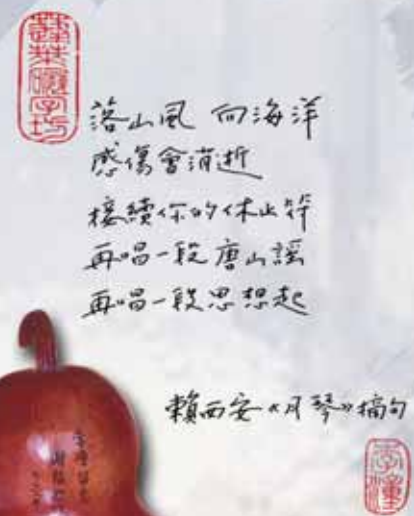 落山風 向海洋
感傷會消逝
接續你的休止符
再唱一段唐山謠
再唱一段思想起
賴西安《月琴》摘句